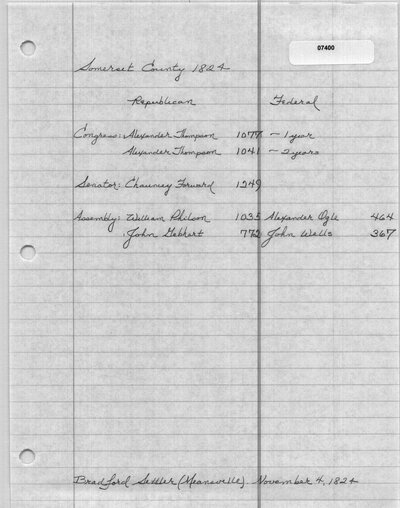 07400
Somerset County 1824
Republican Federal
Congress: Alexander Thompson 1077 - 1 year
Alexander Thompson 1041 - 2 years
Senator: Chauncey Forward 1249
Assembly: William Philson 1035 Alexander Ogle 464
John Gebhart 772 John Wells 367
Bradford Settler (Meansville), November 4, 1824